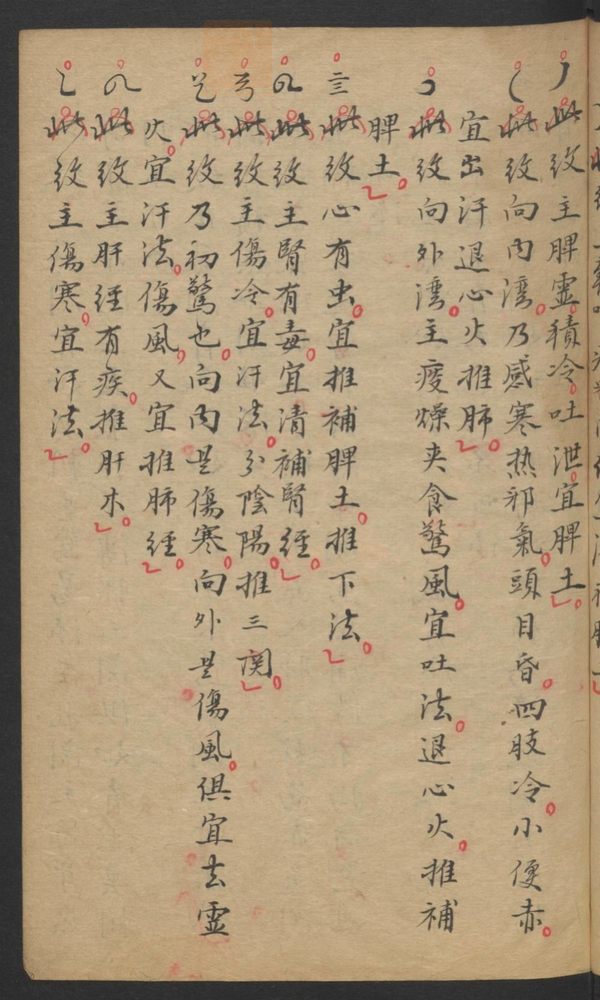 此紋主脾靈積冷吐泄宜脾土
此紋向内灣乃感寒热邪氣頭目昏四肢冷小便赤
宜出汗退心火推肺
此紋向外灣主痰燥夹食驚風宜吐法退心火推補
脾土
亖此紋心有虫宜推補脾土推下法
此紋主腎有毒宜清補腎經
此紋主傷冷宜汗法分陰陽推三関
此紋乃初驚也向内是傷寒向外是傷風俱宜去霊
火宜汗法傷風又宜推肺經
此紋主肝經有疾推肝木
此紋主傷寒宜汗法